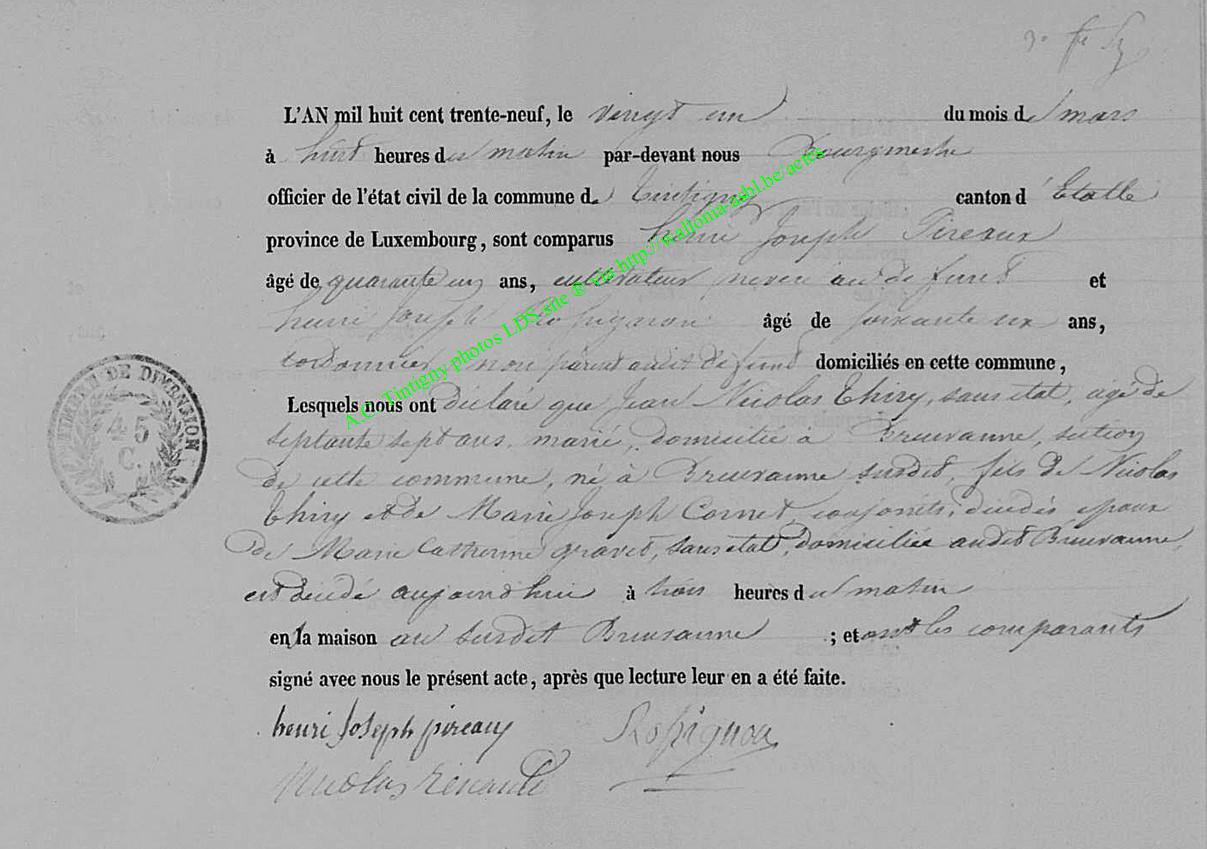 L'AN mil huit cent trente-neuf, le vingt un du mois de mars
à huit heures du matin par-devant nous Bourgmestre
officier de l'état civil de la commune de Tintigny canton d'Etalle
province de Luxembourg, sont comparus henri Joseph Pireaux
âgé de quarante un ans, cultivateur, neveu au defunt et
henri Joseph Rossignon âgé de soixante ans,
cordonnier non parent audit defunt domiciliés en cette commune,
Lesquels nous ont déclaré que Jean Nicolas Thiry, sans etat, agé de
septante sept ans, marié, domicilié à Breuvanne, section
de cette commune, né à Breuvanne susdit, fils de Nicolas
Thiry et de Marie Joseph Cornet, conjoints, décédés epoux
de Marie Catherine gravet, sans etat, domiciliée audit Breuvanne,
est décédé aujourd'hui à trois heures du matin
en la maison au susdit Breuvanne ; et ont les comparants
signé avec nous le présent acte, après que lecture leur en a été faite.
henri Joseph pireaux Rossignon
Nicolas
TIMBRE DE DIMENSION
45
C.
A.C. Tintigny photos LDS-site ® via http://wallonia-asbl.be/actes